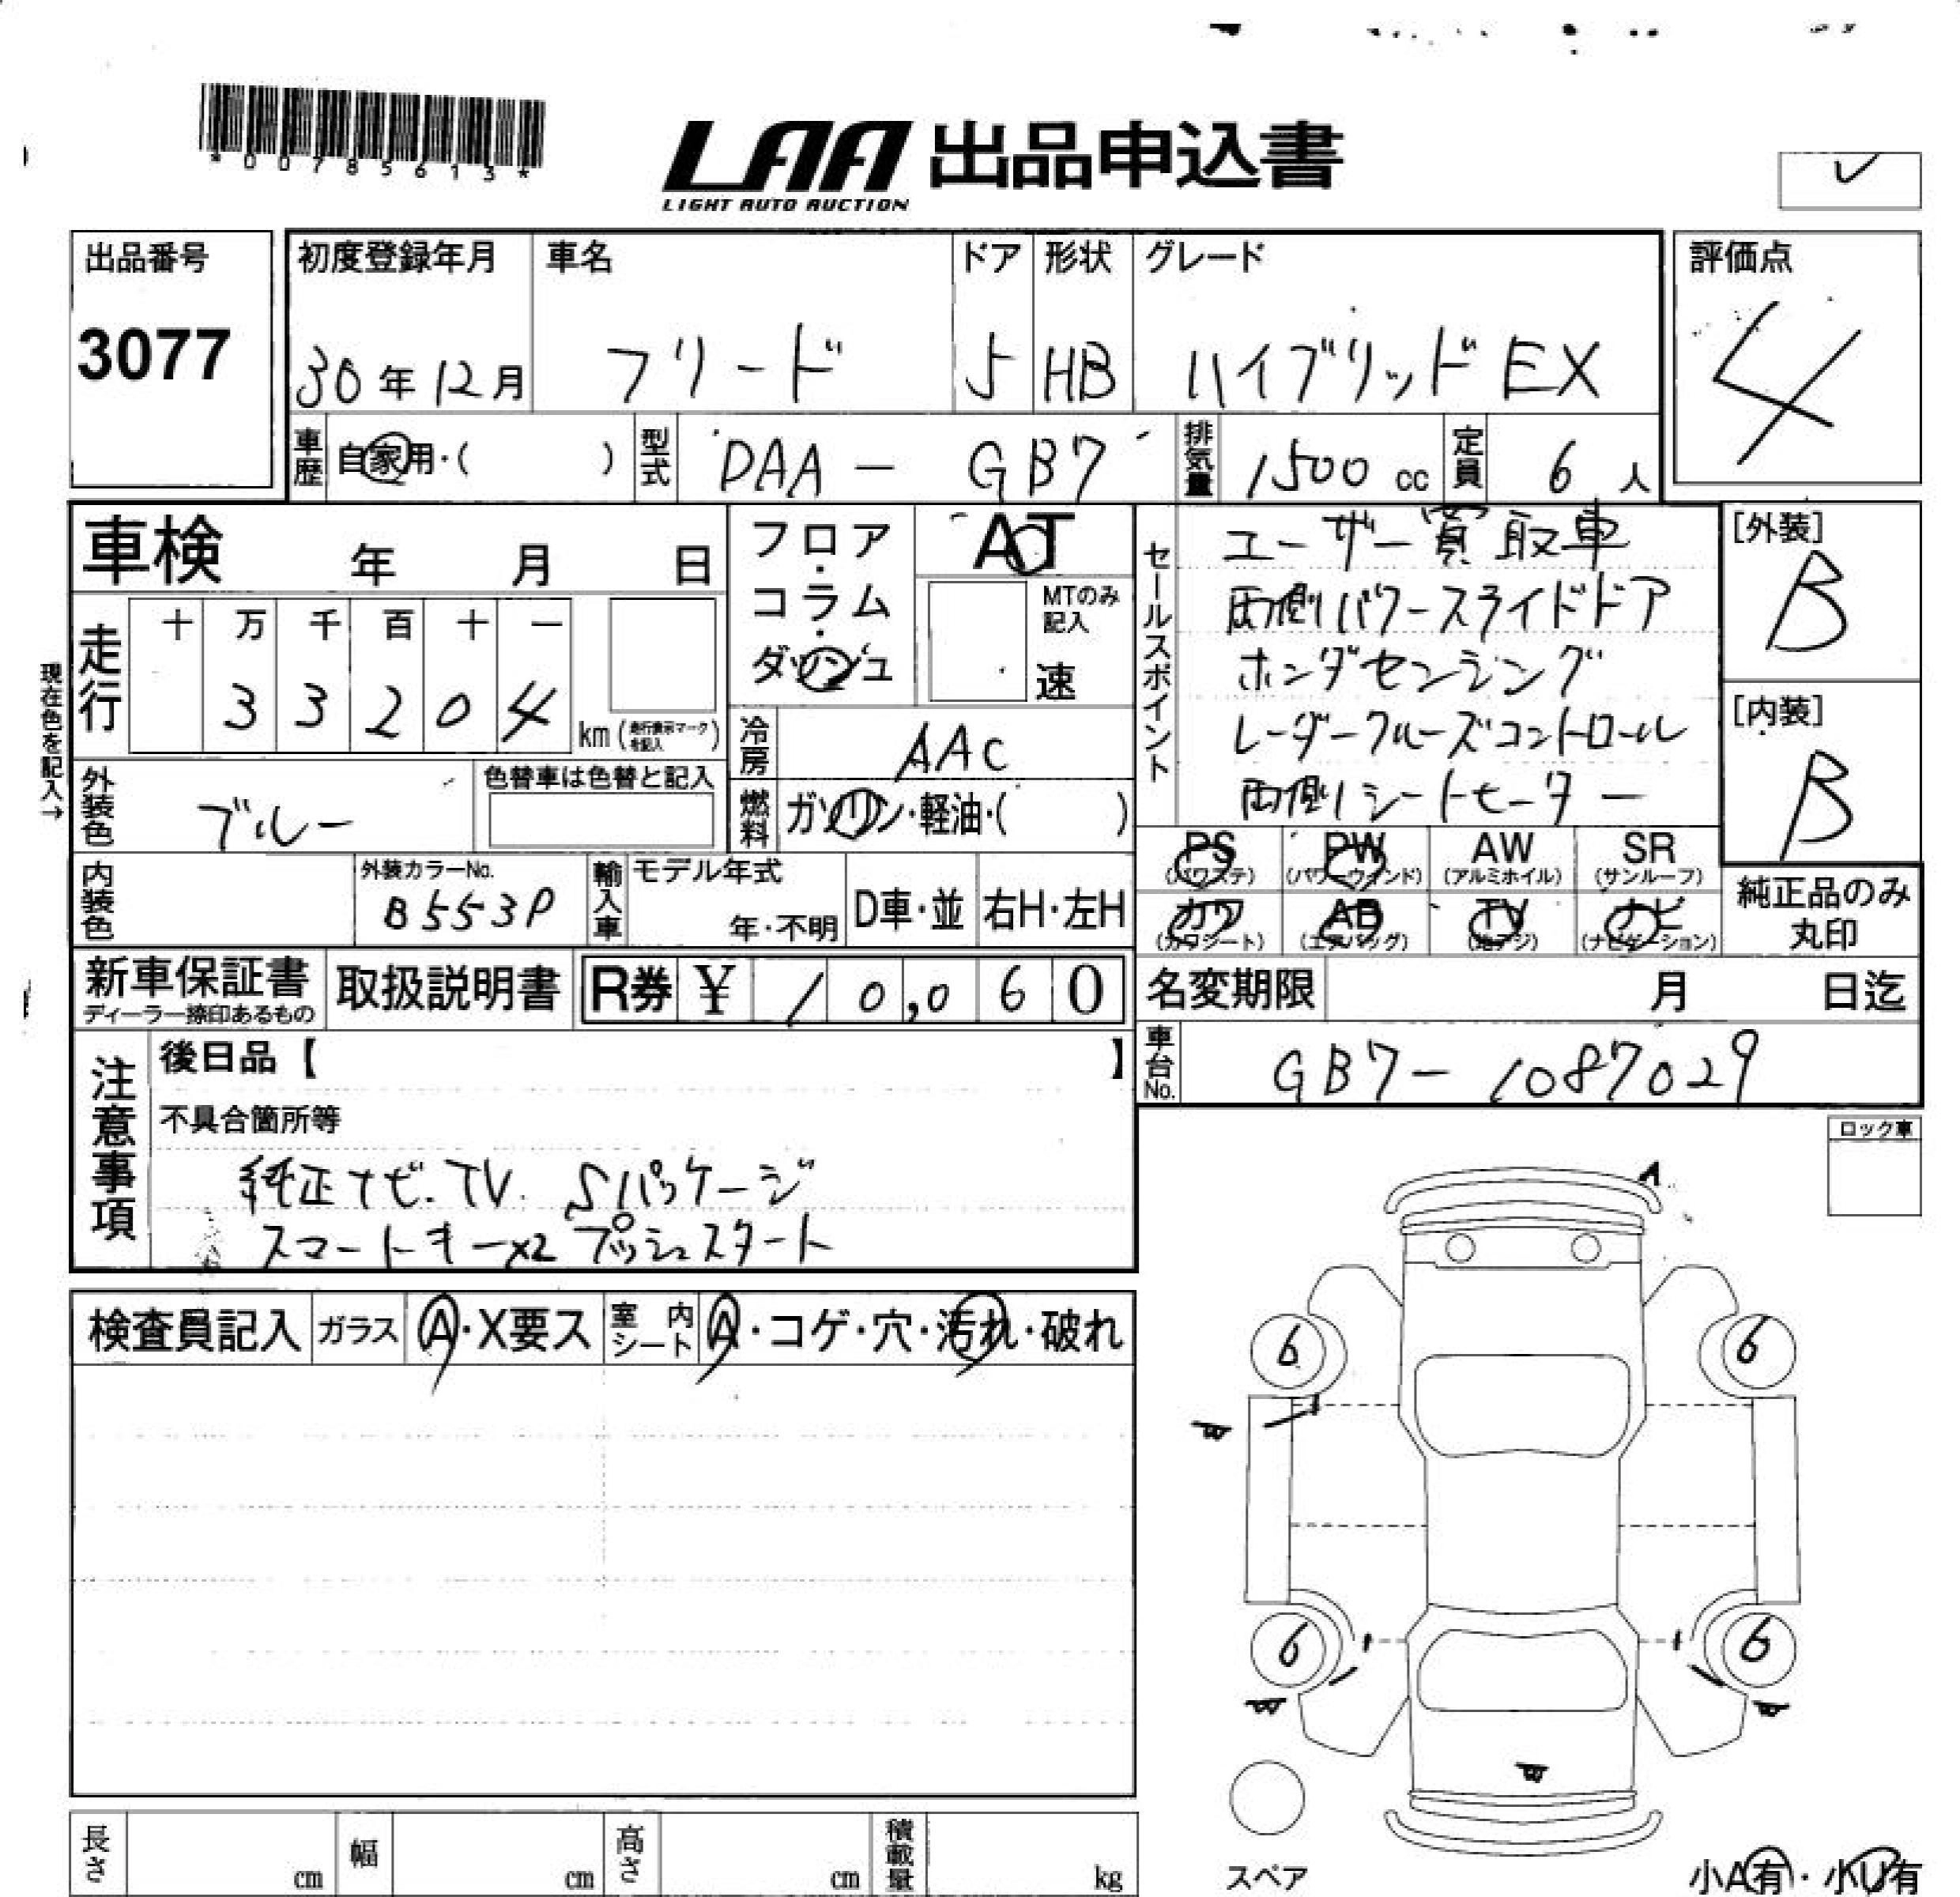 *00785613*
LAA 出品申込書
LIGHT AUTO AUCTION
出品番号
3077
初度登録年月 車名 ドア 形状 グレード
30年12月 フリード 5 HB ハイブリッドEX
評価点
4
車歴 自家用・( ) 型式 DAA- GB7 排気量 1500cc 定員 6人
車検 年 月 日
フロア・コラム・ダッシュ
AT
MTのみ記入
速
セールスポイント
ユーザー買取車
両側パワースライドドア
ホンダセンシング
レーダークルーズコントロール
両側シートヒーター
[外装]
B
[内装]
B
現在色を記入→
走行
十 万 千 百 十 一
3 3 2 0 4 km(走行表示マークを記入)
冷房 AAC
外装色 ブルー 色替車は色替と記入
燃料 ガソリン・軽油・( )
内装色 外装カラーNo. B553P
輸入車 モデル年式 年・不明 D車・並 右H・左H
PS PW AW SR
(パワステ) (パワーウインド) (アルミホイル) (サンルーフ)
カワ AB TV ナビ
(カワシート) (エアバッグ) (地デジ) (ナビゲーション)
純正品のみ丸印
新車保証書 取扱説明書 R券 ¥ 10,060
ディーラー捺印あるもの
名変期限 月 日迄
車台No. GB7-1087029
注意事項
後日品【 】
不具合箇所等
純正ナビ.TV. Sパッケージ
スマートキー×2 プッシュスタート
ロック車
A
検査員記入 ガラス A・X要ス 室内シート A・コゲ・穴・汚れ・破れ
6 6
6 6
長さ cm 幅 cm 高さ cm 積載量 kg
スペア
小A有・小U有